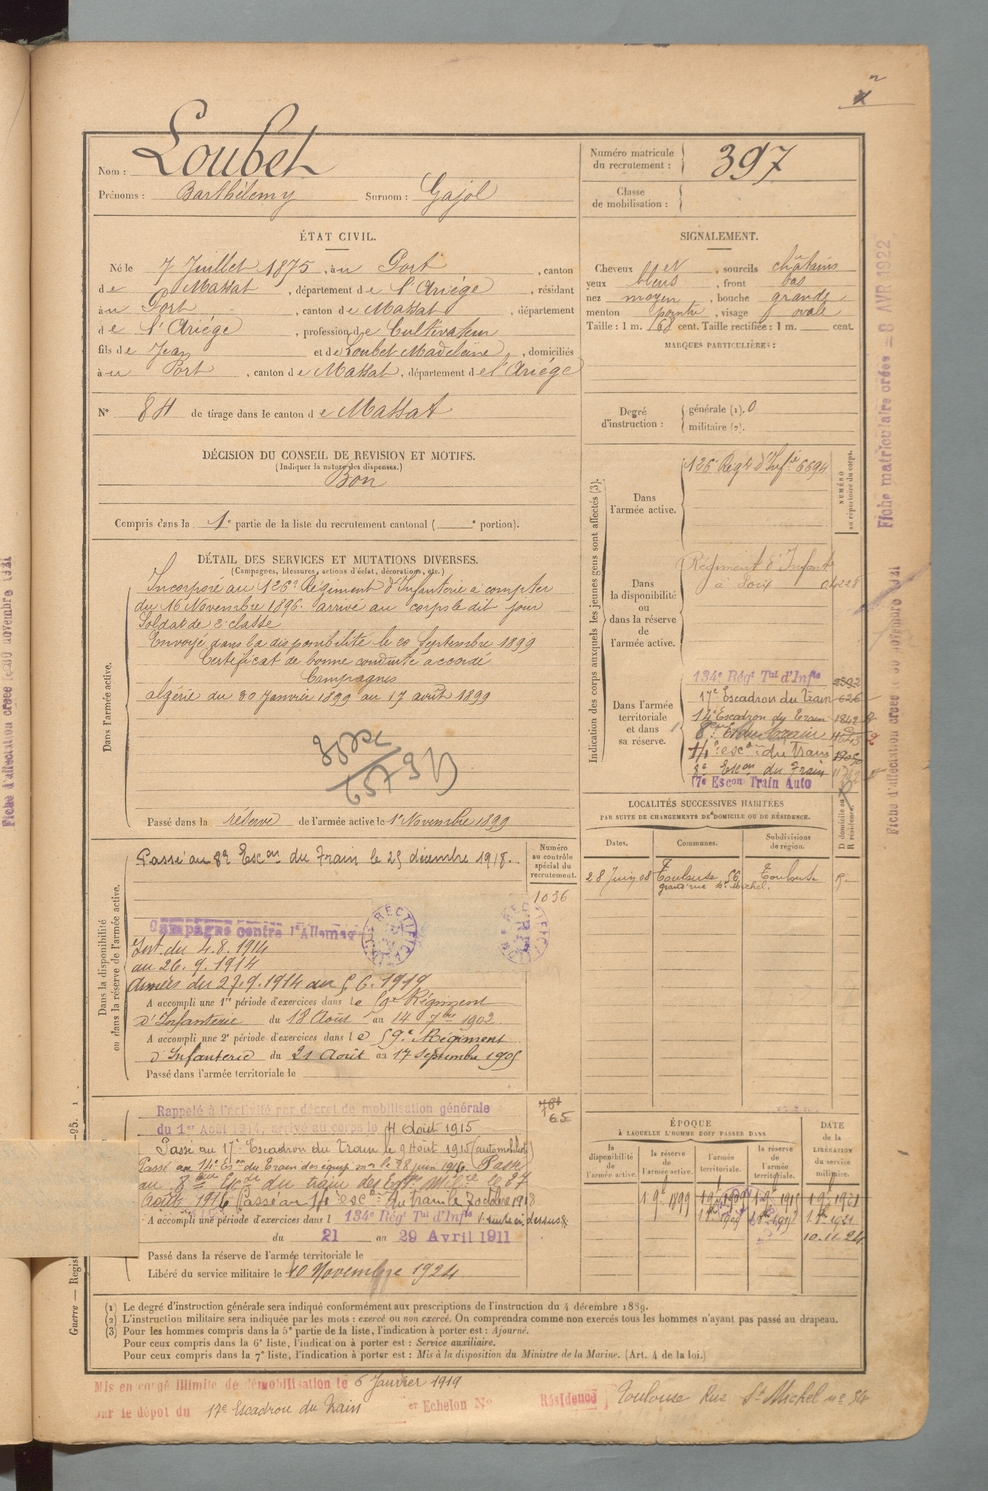 Nom : Loubet
Prénoms : Barthélemy Surnom : Gajol
Numéro matricule du recrutement : 397
Classe de mobilisation :
ÉTAT CIVIL.
Né le 7 Juillet 1875, à u Port, canton
de Massat, département de l'Ariège, résidant
à u Port, canton de Massat, département
de l'Ariège, profession de Cultivateur
fils de Jean et de Loubet Madeleine, domiciliés
à u Port, canton de Massat, département de l'Ariège
N° 84 de tirage dans le canton de Massat
DÉCISION DU CONSEIL DE REVISION ET MOTIFS.
(Indiquer la nature des dispenses.)
Bon
Compris dans la 1e partie de la liste du recrutement cantonal ( e portion).
SIGNALEMENT.
Cheveux , sourcils châtains
yeux bleus, front bas
nez moyen, bouche grande
menton pointu, visage ovale
Taille : 1 m. 68 cent. Taille rectifiée : 1 m. cent.
MARQUES PARTICULIÈRES :
Degré d'instruction : générale (1). 0
militaire (2).
DÉTAIL DES SERVICES ET MUTATIONS DIVERSES.
(Campagnes, blessures, actions d'éclat, décorations, etc.)
Dans l'armée active.
Incorporé au 126e Régiment d'Infanterie à compter
du 16 Novembre 1896. arrivé au corps le dit jour
Soldat de 2e classe
Envoyé dans la disponibilité le 20 Septembre 1899
Certificat de bonne conduite accordé
Campagnes
algérie du 30 Janvier 1899 au 17 août 1899
Passé dans la réserve de l'armée active le 1er Novembre 1899
Indication des corps auxquels les jeunes gens sont affectés (3).
NUMÉRO au répertoire du corps.
Dans l'armée active.
126 Regt d'Infie 6694
Dans la disponibilité ou dans la réserve de l'armée active.
Régiment d'Infant
à Foix
Dans l'armée territoriale et dans sa réserve.
134e Régt Tal d'Infie
17e Escadron du Train
14e Escadron du Train 1842
8e Escon du Train
17e Escon Train Auto
LOCALITÉS SUCCESSIVES HABITÉES
PAR SUITE DE CHANGEMENTS DE DOMICILE OU DE RÉSIDENCE.
Dates. Communes. Subdivisions de région. D domicile ou R résidence.
28 Juin 08 Toulouse, 56 Toulouse R.
grand rue St Michel.
Dans la disponibilité ou dans la réserve de l'armée active.
Numéro au contrôle spécial du recrutement.
1036
Passé au 8e Escon du Train le 25 décembre 1918.
Campagne contre l'Allemagne
RECTIFICATION
Int. du 4.8.1914
au 26.9.1914
Armées du 27.9.1914 au 5 6.1919
A accompli une 1re période d'exercices dans le Régiment
d'Infanterie du 18 Août au 14 7bre 1902
A accompli une 2e période d'exercices dans le 59e Régiment
d'Infanterie du 21 Août au 17 Septembre 1905
Passé dans l'armée territoriale le
Rappelé à l'activité par décret de mobilisation générale
du 1er Août 1914, arrivé au corps le 4 Août 1915
65
Passé au 17e Escadron du Train le 9 Août 1915 (automobiliste)
Passé au 14e Eson du Train des équip. mres le 28 juin 1916. Passé
au 8e Eson du train des Eqps Milres le 27
Août 1916 Passé au escon du train le 7 octobre 1918
A accompli une période d'exercices dans l 134e Régt Tal d'Infie suite ci dessus
du 21 au 29 Avril 1911
Passé dans la réserve de l'armée territoriale le
Libéré du service militaire le 10 Novembre 1924
ÉPOQUE
À LAQUELLE L'HOMME DOIT PASSER DANS
la disponibilité de l'armée active. la réserve de l'armée active. l'armée territoriale. la réserve de l'armée territoriale.
DATE de la LIBÉRATION du service militaire.
1 9e 1899 1 9e 1921
10.11.24
(1) Le degré d'instruction générale sera indiqué conformément aux prescriptions de l'instruction du 4 décembre 1889.
(2) L'instruction militaire sera indiquée par les mots : exercé ou non exercé. On comprendra comme non exercés tous les hommes n'ayant pas passé au drapeau.
(3) Pour les hommes compris dans la 5e partie de la liste, l'indication à porter est : Ajourné.
Pour ceux compris dans la 6e liste, l'indication à porter est : Service auxiliaire.
Pour ceux compris dans la 7e liste, l'indication à porter est : Mis à la disposition du Ministre de la Marine. (Art. 4 de la loi.)
Mis en congé illimité de démobilisation le 6 Janvier 1919
par le dépot du 17e Escadron du Train er Echelon No Résidence Toulouse Rue St Michel no
Fiche matriculaire créée - 8 AVR 1922
Fiche d'affectation créée le 30 novembre 1921
Guerre — Regis